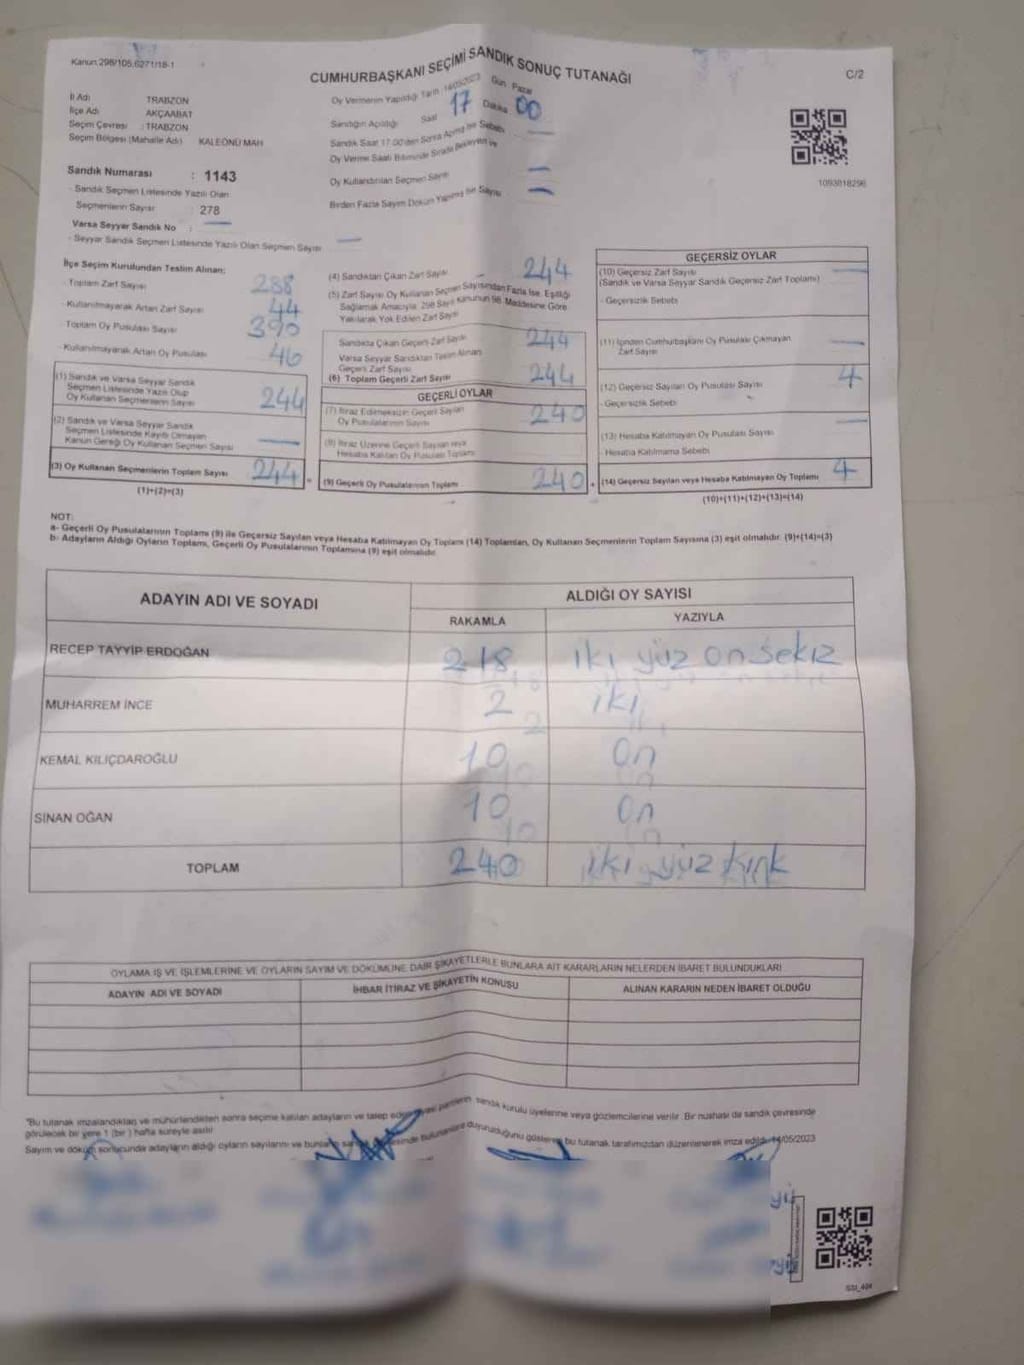 Kanun.298/105,6271/18-1
CUMHURBAŞKANI SEÇİMİ SANDIK SONUÇ TUTANAĞI
C/2
İl Adı TRABZON
İlçe Adı AKÇAABAT
Seçim Çevresi : TRABZON
Seçim Bölgesi (Mahalle Adı) KALEÖNÜ MAH
Oy Vermenin Yapıldığı Tarih 14/05/2023 Gün Pazar
Sandığın Açıldığı Saat 17 Dakika 00
Sandık Saat 17.00'den Sonra Açılmış ise Sebebi
Oy Verme Saati Bitiminde Sırada Bekleyen ve
Oy Kullandırılan Seçmen Sayısı
Birden Fazla Sayım Döküm Yapılmış ise Sayısı
1093018296
Sandık Numarası : 1143
- Sandık Seçmen Listesinde Yazılı Olan
Seçmenlerin Sayısı 278
Varsa Seyyar Sandık No :
- Seyyar Sandık Seçmen Listesinde Yazılı Olan Seçmen Sayısı
İlçe Seçim Kurulundan Teslim Alınan:
- Toplam Zarf Sayısı 288
- Kullanılmayarak Artan Zarf Sayısı 44
- Toplam Oy Pusulası Sayısı 390
- Kullanılmayarak Artan Oy Pusulası 46
(1) Sandık ve Varsa Seyyar Sandık
Seçmen Listesinde Yazılı Olup
Oy Kullanan Seçmenlerin Sayısı 244
(2) Sandık ve Varsa Seyyar Sandık
Seçmen Listesinde Kayıtlı Olmayan
Kanun Gereği Oy Kullanan Seçmen Sayısı
(3) Oy Kullanan Seçmenlerin Toplam Sayısı 244
(1)+(2)=(3)
(4) Sandıktan Çıkan Zarf Sayısı 244
(5) Zarf Sayısı Oy Kullanan Seçmen Sayısından Fazla ise, Eşitliği
Sağlamak Amacıyla, 298 Sayılı Kanunun 98. Maddesine Göre
Yakılarak Yok Edilen Zarf Sayısı
Sandıkta Çıkan Geçerli Zarf Sayısı 244
Varsa Seyyar Sandıktan Teslim Alınan
Geçerli Zarf Sayısı
(6) Toplam Geçerli Zarf Sayısı 244
GEÇERLİ OYLAR
(7) İtiraz Edilmeksizin Geçerli Sayılan
Oy Pusulalarının Sayısı 240
(8) İtiraz Üzerine Geçerli Sayılan veya
Hesaba Katılan Oy Pusulası Toplamı
(9) Geçerli Oy Pusulalarının Toplamı 240
GEÇERSİZ OYLAR
(10) Geçersiz Zarf Sayısı
(Sandık ve Varsa Seyyar Sandık Geçersiz Zarf Toplamı)
- Geçersizlik Sebebi
(11) İçinden Cumhurbaşkanı Oy Pusulası Çıkmayan
Zarf Sayısı
(12) Geçersiz Sayılan Oy Pusulası Sayısı 4
- Geçersizlik Sebebi
(13) Hesaba Katılmayan Oy Pusulası Sayısı
- Hesaba Katılmama Sebebi
(14) Geçersiz Sayılan veya Hesaba Katılmayan Oy Toplamı 4
(10)+(11)+(12)+(13)=(14)
NOT:
a- Geçerli Oy Pusulalarının Toplamı (9) ile Geçersiz Sayılan veya Hesaba Katılmayan Oy Toplamı (14) Toplamları, Oy Kullanan Seçmenlerin Toplam Sayısına (3) eşit olmalıdır. (9)+(14)=(3)
b- Adayların Aldığı Oyların Toplamı, Geçerli Oy Pusulalarının Toplamına (9) eşit olmalıdır.
ADAYIN ADI VE SOYADI ALDIĞI OY SAYISI
RAKAMLA YAZIYLA
RECEP TAYYİP ERDOĞAN 218 iki yüz on sekiz
MUHARREM İNCE 2 iki
KEMAL KILIÇDAROĞLU 10 on
SİNAN OĞAN 10 on
TOPLAM 240 iki yüz kırk
OYLAMA İŞ VE İŞLEMLERİNE VE OYLARIN SAYIM VE DÖKÜMÜNE DAİR ŞİKAYETLERLE BUNLARA AİT KARARLARIN NELERDEN İBARET BULUNDUKLARI
ADAYIN ADI VE SOYADI İHBAR İTİRAZ VE ŞİKAYETİN KONUSU ALINAN KARARIN NEDEN İBARET OLDUĞU
"Bu tutanak imzalandıktan ve mühürlendikten sonra seçime katılan adayların ve talep eden siyasi partilerin sandık kurulu üyelerine veya gözlemcilerine verilir. Bir nüshası da sandık çevresinde
görülecek bir yere 1 (bir) hafta süreyle asılır
Sayım ve döküm sonucunda adayların aldığı oyların sayılarını ve bunların bulunanlara duyurulduğunu gösteren bu tutanak tarafımızdan düzenlenerek imza edildi. 14/05/2023